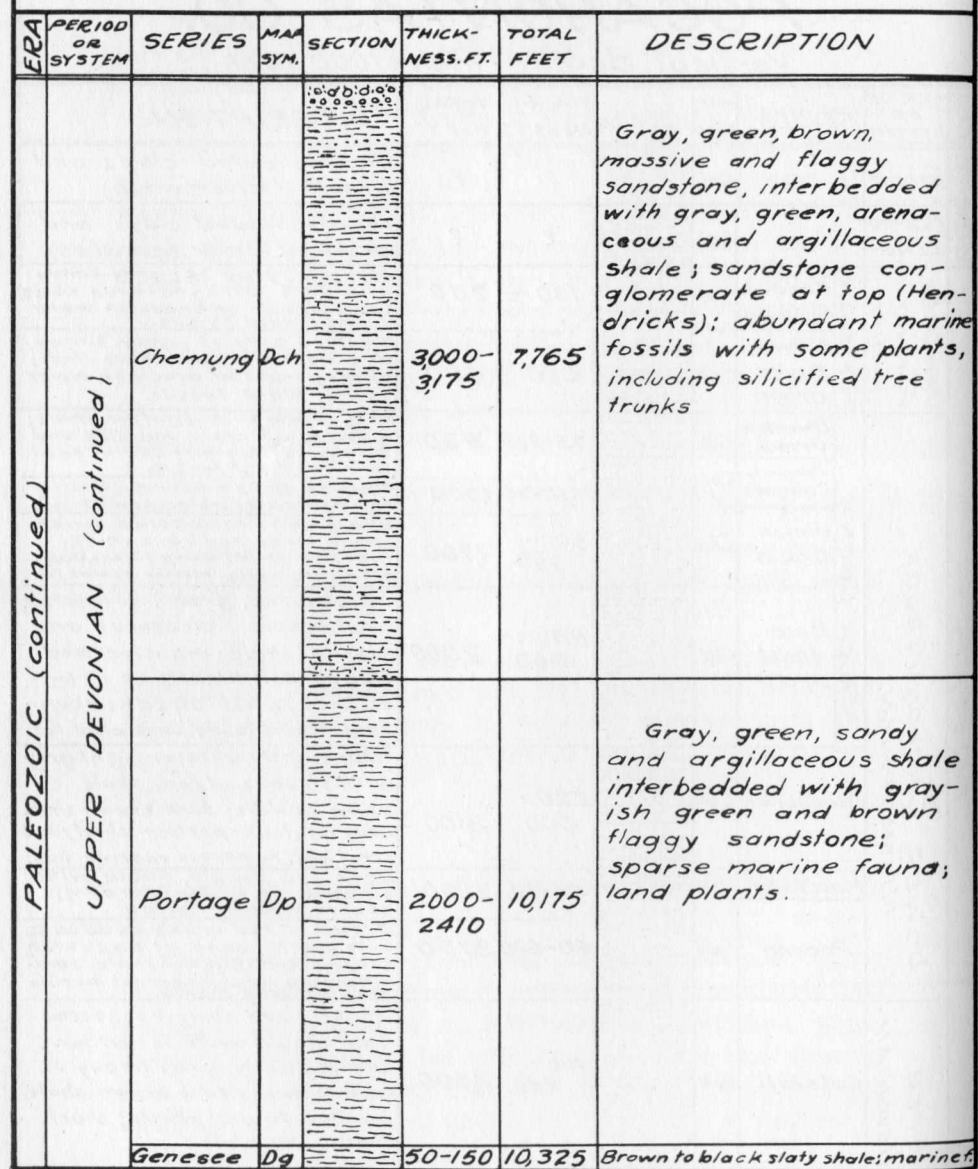 ERA PERIOD OR SYSTEM SERIES MAP SYM. SECTION THICK-NESS.FT. TOTAL FEET DESCRIPTION
PALEOZOIC (continued)
UPPER DEVONIAN (continued)
Chemung Dch 3000-3175 7,765
Gray, green, brown,
massive and flaggy
sandstone, interbedded
with gray, green, arena-
ceous and argillaceous
shale; sandstone con-
glomerate at top (Hen-
dricks); abundant marine
fossils with some plants,
including silicified tree
trunks
Portage Dp 2000-2410 10,175
Gray, green, sandy
and argillaceous shale
interbedded with gray-
ish green and brown
flaggy sandstone;
sparse marine fauna;
land plants.
Genesee Dg 50-150 10,325 Brown to black slaty shale; marine